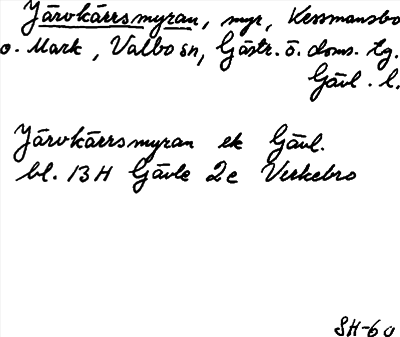 Järvkärrsmyran, myr, Kessmansbo
o. Mark, Valbo sn, Gästr. ö. doms. tg.
Gävl. l.
Järvkärrsmyran ek Gävl.
bl. 13H Gävle 2e Verkebro
SH-60